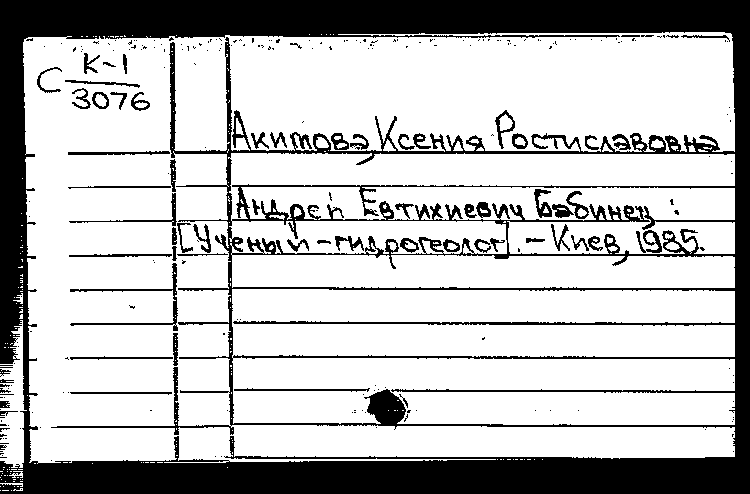 С К-1
3076
Акимова, Ксения Ростиславовна
Андрей Евтихиевич Бабинец :
[Ученый-гидрогеолог]. - Киев, 1985.